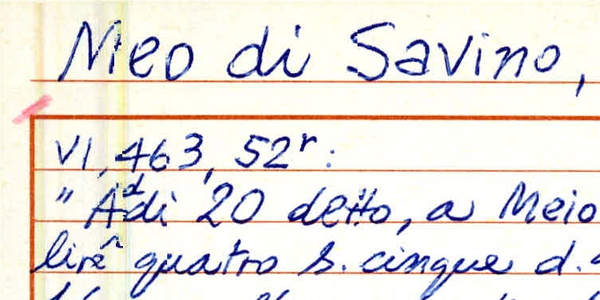 Meo di Savino,
VI, 463, 52r:
"Adi 20 detto, a Meio
lire quatro s. cinque d.